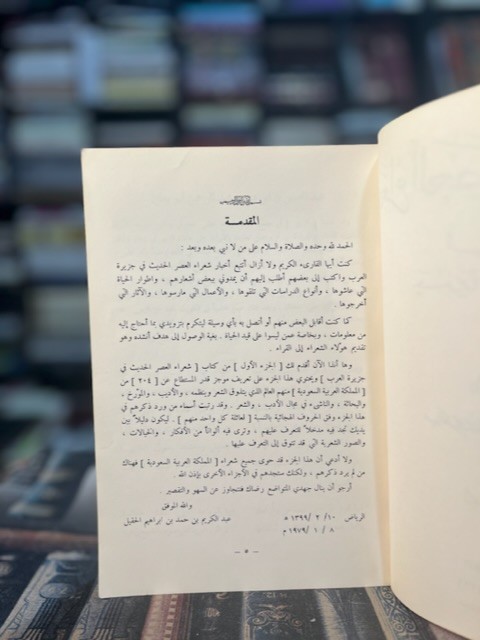 بسم الله الرحمن الرحيم
المقدمـــة
الحمد لله وحده والصلاة والسلام على من لا نبي بعده وبعد :
كنت أيها القارىء الكريم ولا أزال أتتبع أخبار شعراء العصر الحديث في جزيرة
العرب واكتب إلى بعضهم أطلب إليهم أن يمدوني ببعض أشعارهم ، وأطوار الحياة
التي عاشوها ، وأنواع الدراسات التي تلقوها ، والأعمال التي مارسوها ، والآثار التي
أخرجوها .
كما كنت أقابل البعض منهم أو أتصل به بأي وسيلة ليتكرم بتزويدي بما أحتاج إليه
من معلومات ، وبخاصة عمن ليسوا على قيد الحياة . بغية الوصول إلى هدف أنشده وهو
تقديم هؤلاء الشعراء إلى القراء .
وها أنذا الآن أقدم لك [ الجزء الأول ] من كتاب [ شعراء العصر الحديث في
جزيرة العرب ] ويحتوي هذا الجزء على تعريف موجز قدر المستطاع عن [ ٢٠٤ ] من
[ المملكة العربية السعودية ] منهم العالم الذي يتذوق الشعر وينظمه ، والأديب ، والمؤرخ ،
والبحاثة ، والناشىء في مجال الأدب ، والشعر . وقد رتبت أسماء من ورد ذكرهم في
هذا الجزء وفق الحروف الهجائية بالنسبة [ لعائلة كل واحد منهم ] . ليكون دليلاً بين
يديك تجد فيه مدخلاً للتعرف عليهم ، وترى فيه ألواناً من الأفكار ، والخيالات ،
والصور الشعرية التي قد تتوق إلى التعرف عليها .
ولا أدعي أن هذا الجزء قد حوى جميع شعراء [ المملكة العربية السعودية ] فهناك
من لم يرد ذكرهم ، ولكنك ستجدهم في الأجزاء الأخرى بإذن الله .
أرجو أن ينال جهدي المتواضع رضاك فتتجاوز عن السهو والتقصير .
والله الموفق
الرياض ١٠/ ٢ /١٣٩٩ ه عبد الكريم بن حمد بن ابراهيم الحقيل
٨ / ١ /١٩٧٩ م
— ٥ —